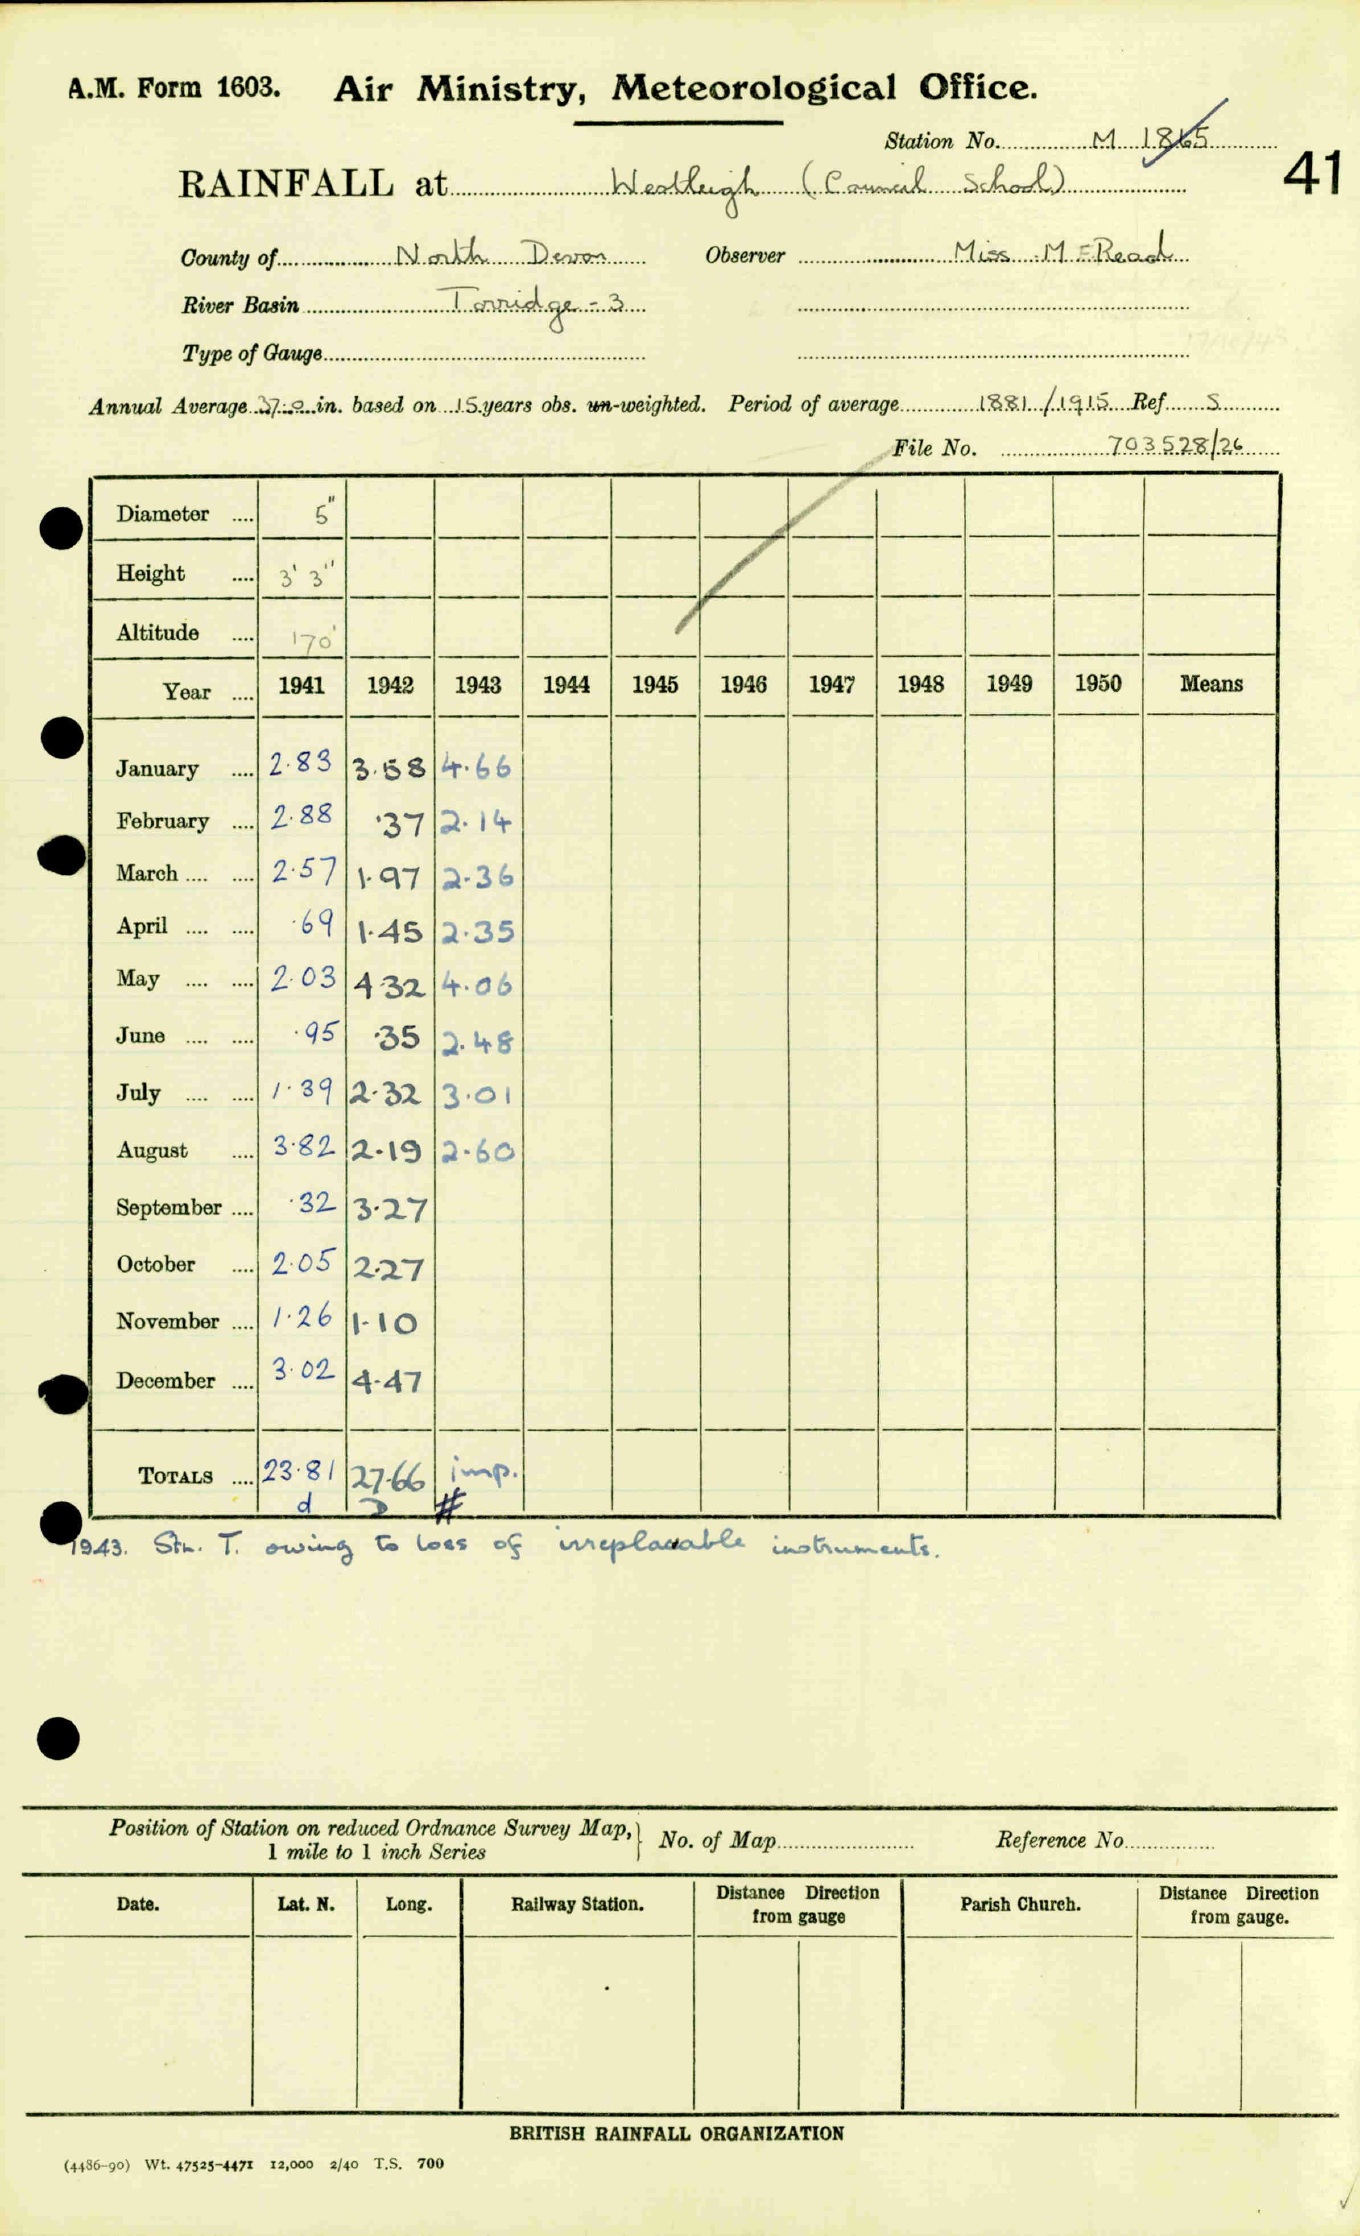 A.M. Form 1603. Air Ministry, Meteorological Office.
Station No. M 1865
41
RAINFALL at Westleigh (Council School)
County of North Devon Observer Miss M E Read
River Basin Torridge - 3
Type of Gauge
Annual Average 37.0 in. based on 15 years obs. un-weighted. Period of average 1881/1915 Ref S
File No. 703528/26
Diameter .... 5"
Height .... 3' 3"
Altitude .... 170'
Year .... 1941 1942 1943 1944 1945 1946 1947 1948 1949 1950 Means
January .... 2.83 3.58 4.66
February .... 2.88 .37 2.14
March .... .... 2.57 1.97 2.36
April .... .... .69 1.45 2.35
May .... .... 2.03 4.32 4.06
June .... .... .95 .35 2.48
July .... .... 1.39 2.32 3.01
August .... 3.82 2.19 2.60
September .... .32 3.27
October .... 2.05 2.27
November .... 1.26 1.10
December .... 3.02 4.47
TOTALS .... 23.81 27.66 imp.
d D #
1943. Stn. T. owing to loss of irreplacable instruments.
Position of Station on reduced Ordnance Survey Map, } No. of Map Reference No
1 mile to 1 inch Series
Date. Lat. N. Long. Railway Station. Distance Direction from gauge Parish Church. Distance Direction from gauge.
BRITISH RAINFALL ORGANIZATION
(4486-90) Wt. 47525-4471 12,000 2/40 T.S. 700